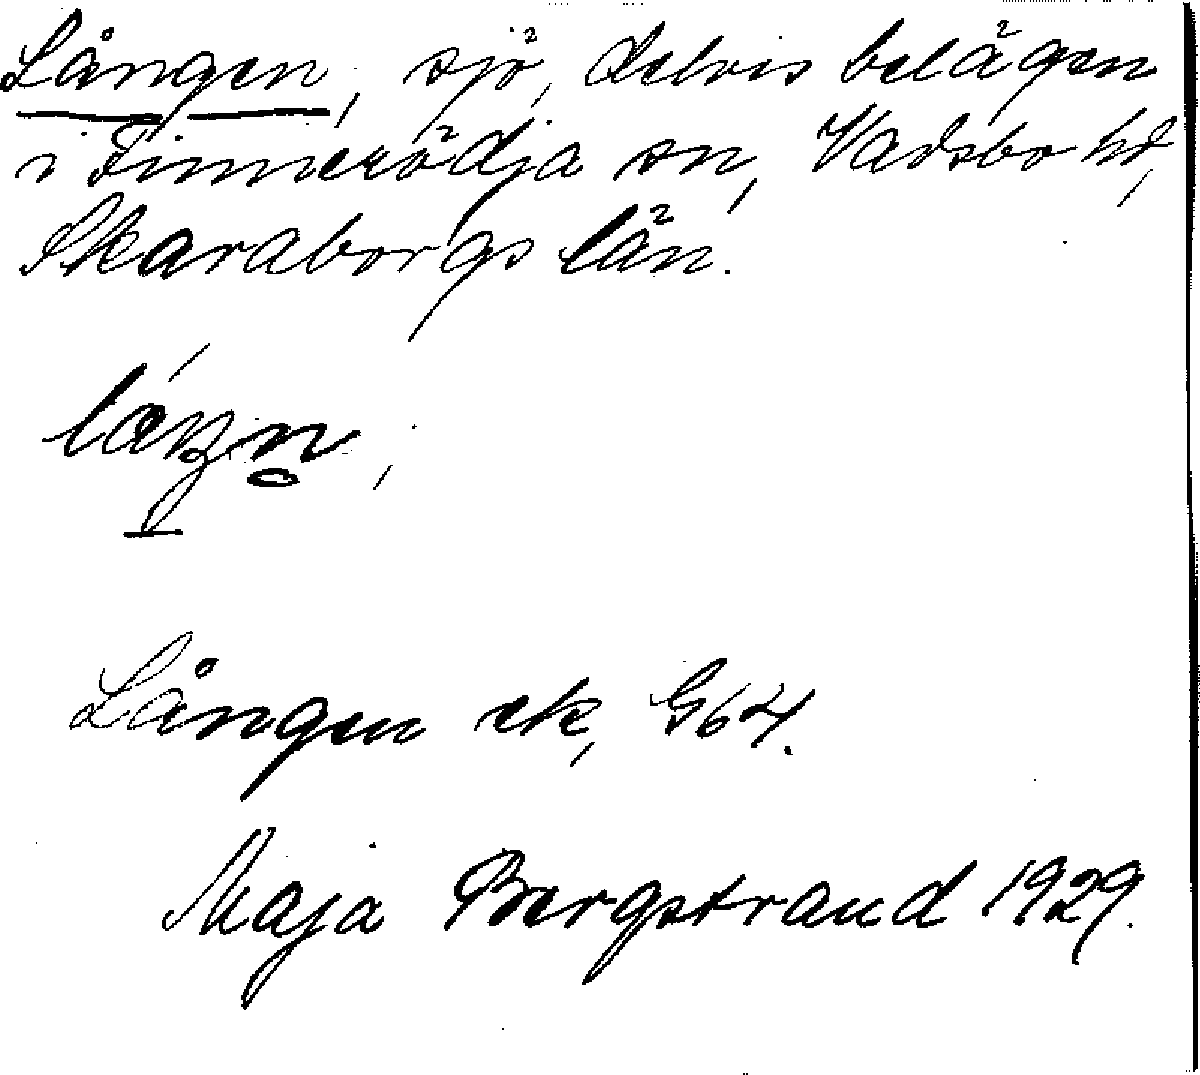 Lången, sjö, delvis belägen
i Finnerödja sn, Vadsbo hd,
Skaraborgs län.
Lången ek, G64.
Maja Bergstrand 1929.